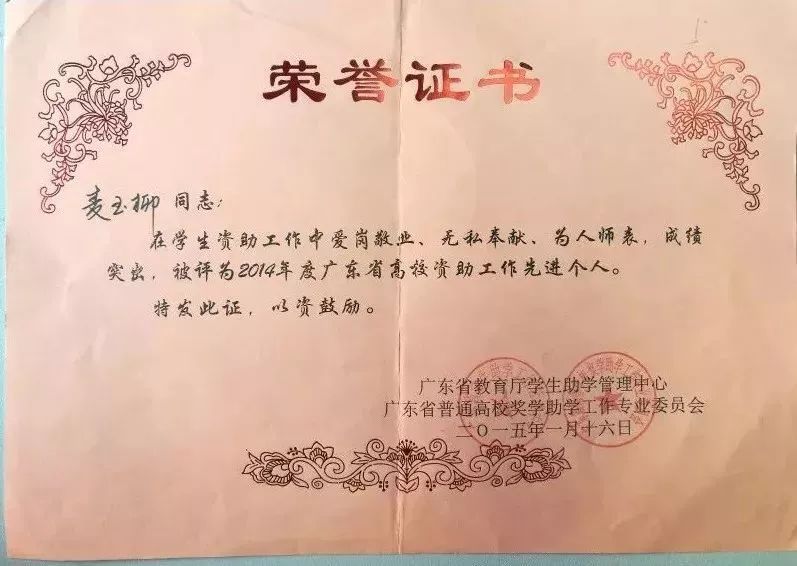 荣誉证书
麦玉柳 同志:
在学生资助工作中爱岗敬业、无私奉献、为人师表,成绩
突出,被评为2014年度广东省高校资助工作先进个人。
特发此证,以资鼓励。
广东省教育厅学生助学管理中心
广东省普通高校奖学助学工作专业委员会
二〇一五年一月十六日